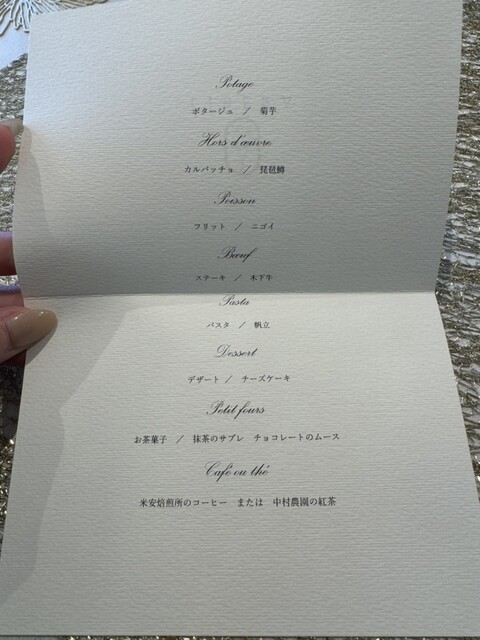 Potage
ポタージュ ／ 菊芋
Hors d'œuvre
カルパッチョ ／ 琵琶鱒
Poisson
フリット ／ ニゴイ
Bœuf
ステーキ ／ 木下牛
Pasta
パスタ ／ 帆立
Dessert
デザート ／ チーズケーキ
Petit fours
お茶菓子 ／ 抹茶のサブレ チョコレートのムース
Café ou thé
米安焙煎所のコーヒー または 中村農園の紅茶